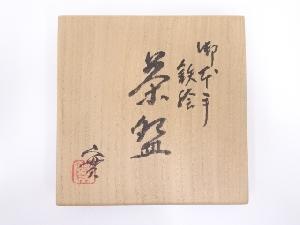 御本手
鉄絵
茶盌